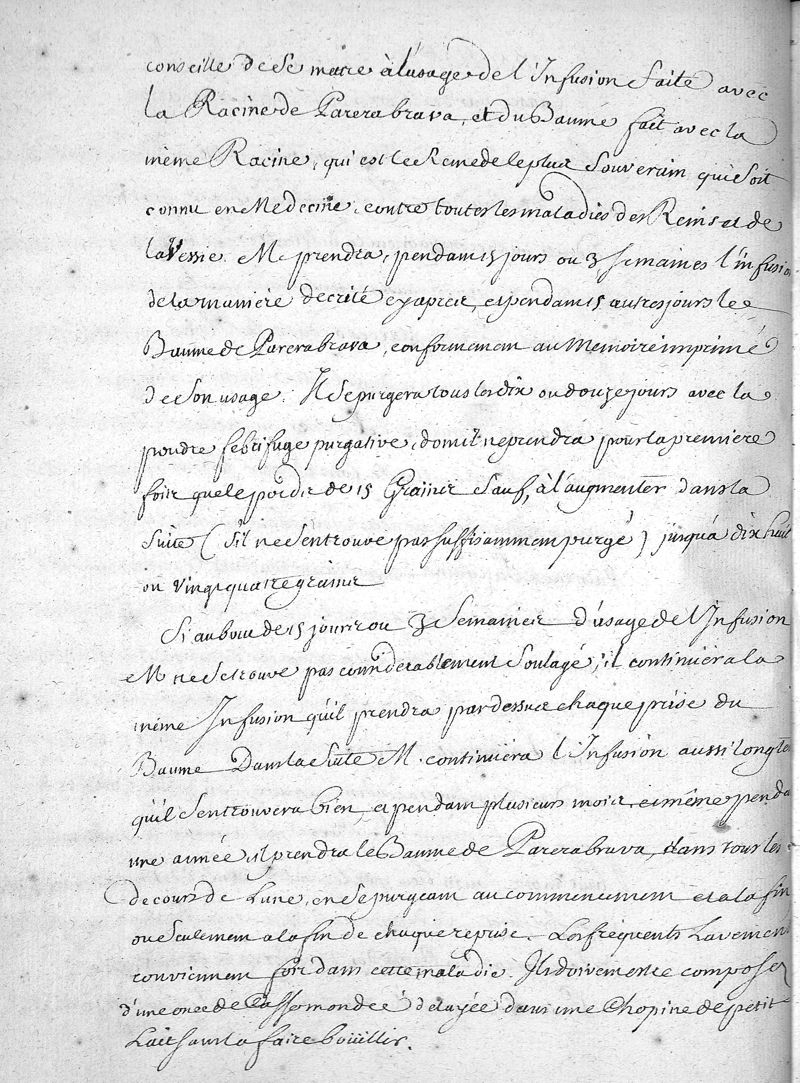 conseille de se mettre à l'usage de l'Infusion faite avec
la Racine de Parera brava, et du Baume fait avec la
même Racine, qui est le Remede le plus Souverain qui soit
connu en Medecine, contre toutes les maladies des Reins et de
la Vessie. M. prendra, pendant 15 jours ou 3 semaines l'infusion
de la maniere decrite cy apres, et pendant 15 autres jours le
Baume de Parera brava, conformement au Memoire imprimé
de son usage. Il se purgera tous les dix ou douze jours avec la
poudre febrifuge purgative, dont il ne prendra pour la premiere
fois que le poids de 15 Grains sauf, à l'augmenter dans la
suite (s'il ne s'en trouve pas suffisamment purgé) jusqu'à dix huit
ou vingt quatre grains
Si au bout de 15 jours ou 3 Semaines d'usage de l'Infusion
M. ne se trouve pas considerablement soulagé, il continuera la
même Infusion qu'il prendra par dessus chaque prise du
Baume Dans la Suite M. continuera l'Infusion aussi longte
qu'il s'en trouvera bien, et pendant plusieurs mois, et même penda
une année, il prendra le Baume de Parera brava, dans tous les
decours de Lune, en se purgeant au commencement et a la fin
ou seulement a la fin de chaque reprise. Les frequents Lavemens
conviennent fort dans cette maladie. Ils doivent etre composés
d'une once de Casse mondée délayée dans une Chopine de petit
Lait sans la faire boüillir.